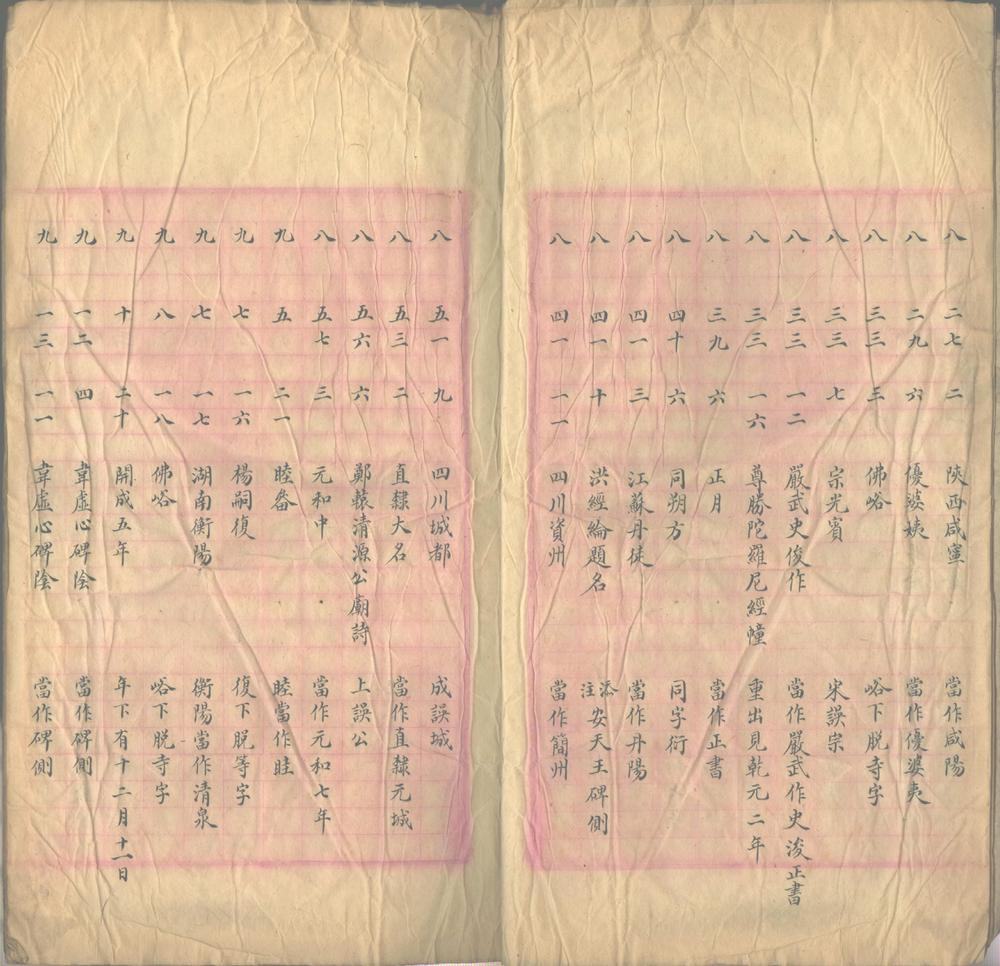 八 二七 二 陝西咸寧 當作咸陽
八 二九 六 優婆姨 當作優婆夷
八 三三 三 佛峪 峪下脫寺字
八 三三 七 宗光賓 宋誤宗
八 三三 一二 嚴武史俊作 當作嚴武作史浚正書
八 三三 一六 尊勝陀羅尼經幢 重出見乾元二年
八 三九 六 正月 當作正書
八 四十 六 同朔方 同字衍
八 四一 三 江蘇丹徒 當作丹陽
八 四一 十 洪經綸題名 添注安天王碑側
八 四一 二一 四川資州 當作簡州
八 五一 九 四川城都 成誤城
八 五三 二 直隸大名 當作直隸元城
八 五六 六 鄭轅清源公廟詩 上誤公
八 五七 三 元和中 當作元和七年
九 五 二一 睦畚 睦當作眭
九 七 一六 楊嗣復 復下脫等字
九 七 一七 湖南衡陽 衡陽當作清泉
九 八 一八 佛峪 峪下脫寺字
九 十 二十 開成五年 年下有十二月十一日
九 一二 四 韋虛心碑陰 當作碑側
九 一三 一一 韋虛心碑陰 當作碑側